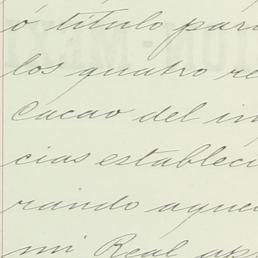 ó título par
los quatro re
Cacao del in
cias estableci
rando aque
mi Real ap